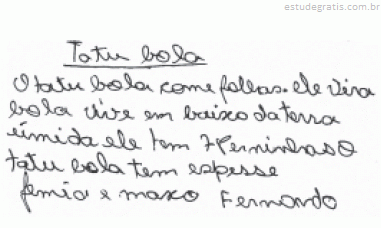 estudegratis.com.br
Tatu bola
O tatu bola come folhas. ele vira
bola vive em baixo da terra
úmida ele tem 7 Perninhas O
tatu bola tem espesse
femia e maxo Fernando